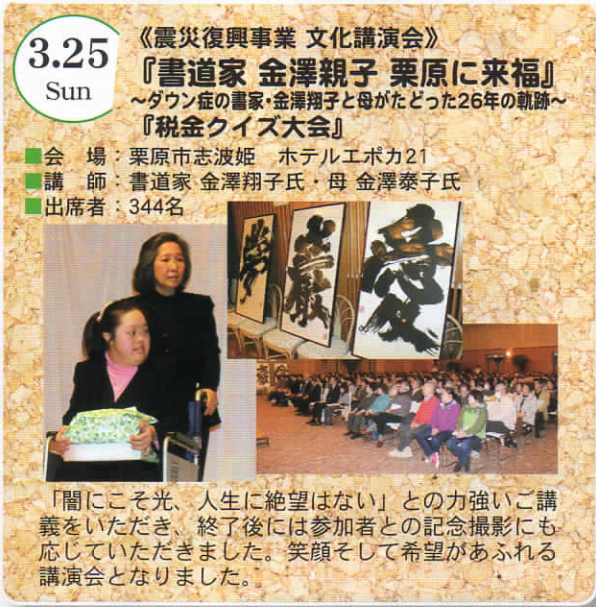 3.25
Sun
《震災復興事業 文化講演会》
『書道家 金澤親子 栗原に来福』
~ダウン症の書家・金澤翔子と母がたどった26年の軌跡~
『税金クイズ大会』
■会　場:栗原市志波姫　ホテルエポカ21
■講　師:書道家 金澤翔子氏・母 金澤泰子氏
■出席者:344名
「闇にこそ光、人生に絶望はない」との力強いご講
義をいただき、終了後には参加者との記念撮影にも
応じていただきました。笑顔そして希望があふれる
講演会となりました。